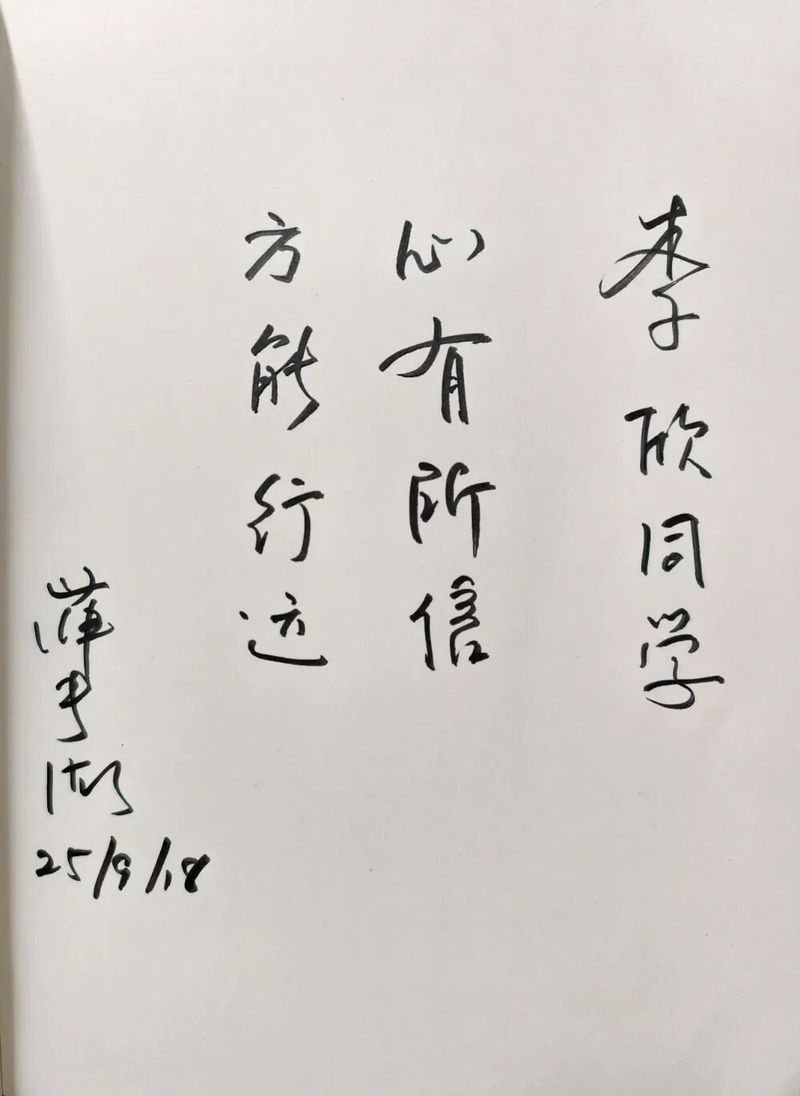 李欣同学
心有所信
方能行远
25/9/18